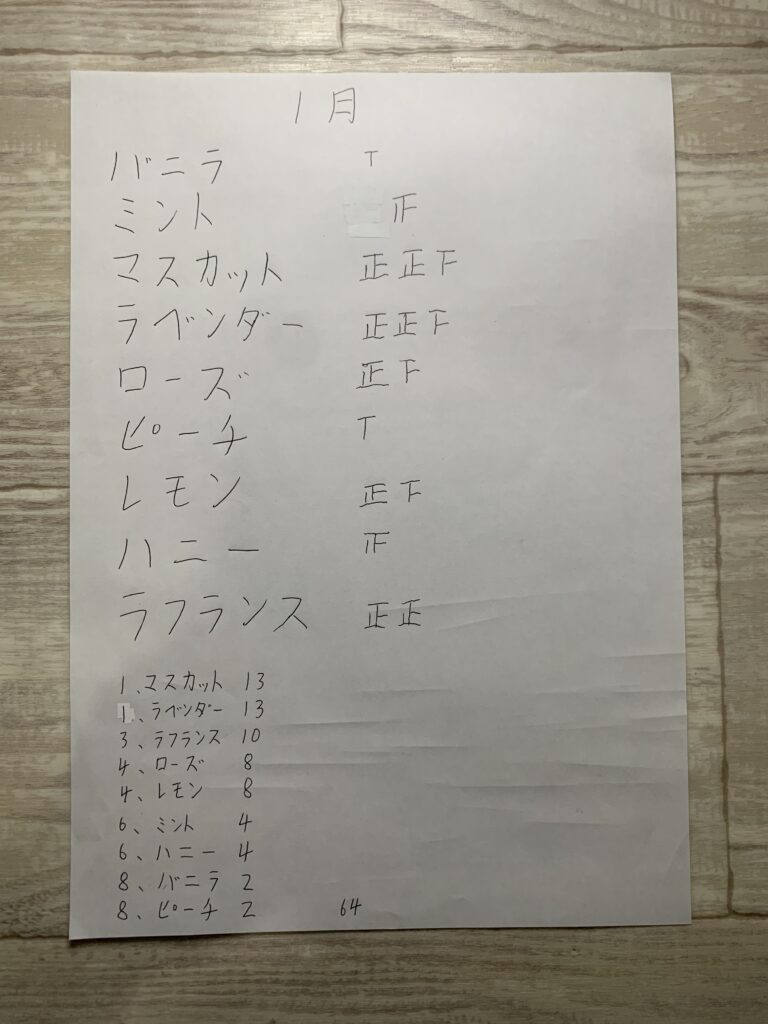 1月
バニラ T
ミント 正
マスカット 正正下
ラベンダー 正正下
ローズ 正下
ピーチ T
レモン 正下
ハニー 正
ラフランス 正正
1、マスカット 13
1、ラベンダー 13
3、ラフランス 10
4、ローズ 8
4、レモン 8
6、ミント 4
6、ハニー 4
8、バニラ 2
8、ピーチ 2 64